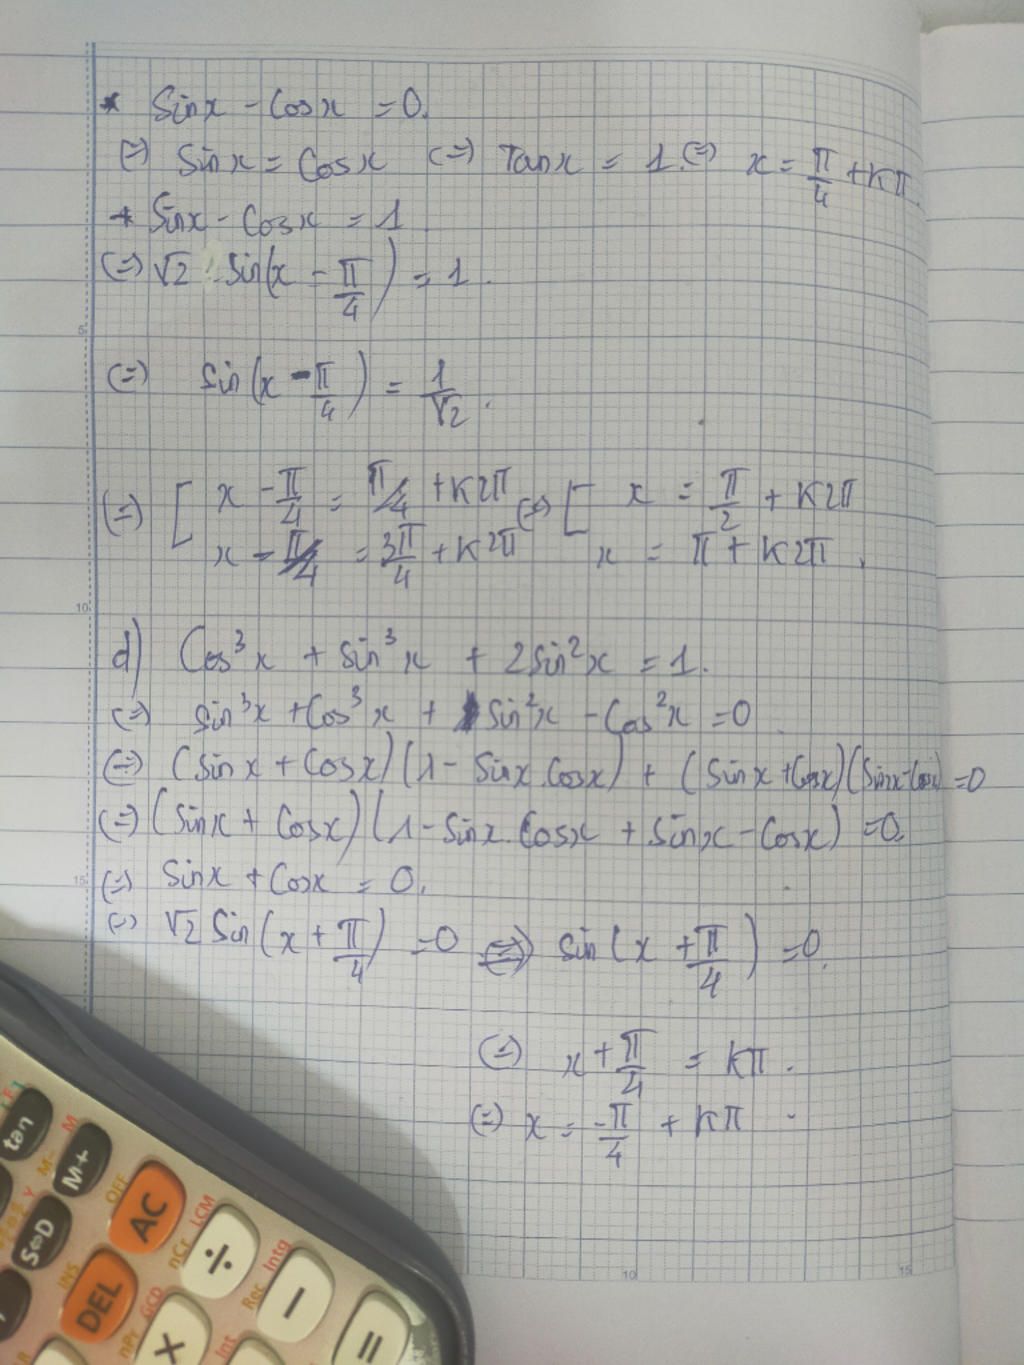 * Sinx - Cosx = 0.
(=) Sinx = Cosx (=) Tanx = 1. (=) x = π/4 + Kπ.
* Sinx - Cosx = 1
(=) √2 Sin(x - π/4) = 1.
5
(=) Sin(x - π/4) = 1/√2.
(=) [ x - π/4 = π/4 + K2π (=) [ x = π/2 + K2π
x - π/4 = 3π/4 + K2π x = π + K2π.
10
d) Cos³x + Sin³x + 2Sin²x = 1.
(=) Sin³x + Cos³x + Sin²x - Cos²x = 0
(=) (Sinx + Cosx)(1 - Sinx.Cosx) + (Sinx + Cosx)(Sinx - Cosx) = 0
(=) (Sinx + Cosx)(1 - Sinx.Cosx + Sinx - Cosx) = 0.
15
(=) Sinx + Cosx = 0.
(=) √2 Sin(x + π/4) = 0 (=) Sin(x + π/4) = 0.
(=) x + π/4 = Kπ.
(=) x = -π/4 + Kπ
10 15
tan
M+ M
M-
S⇔D
OFF
AC
INS
DEL
nCr LCM
÷
nPr GCD
×
Rec Intg
−
Int
=